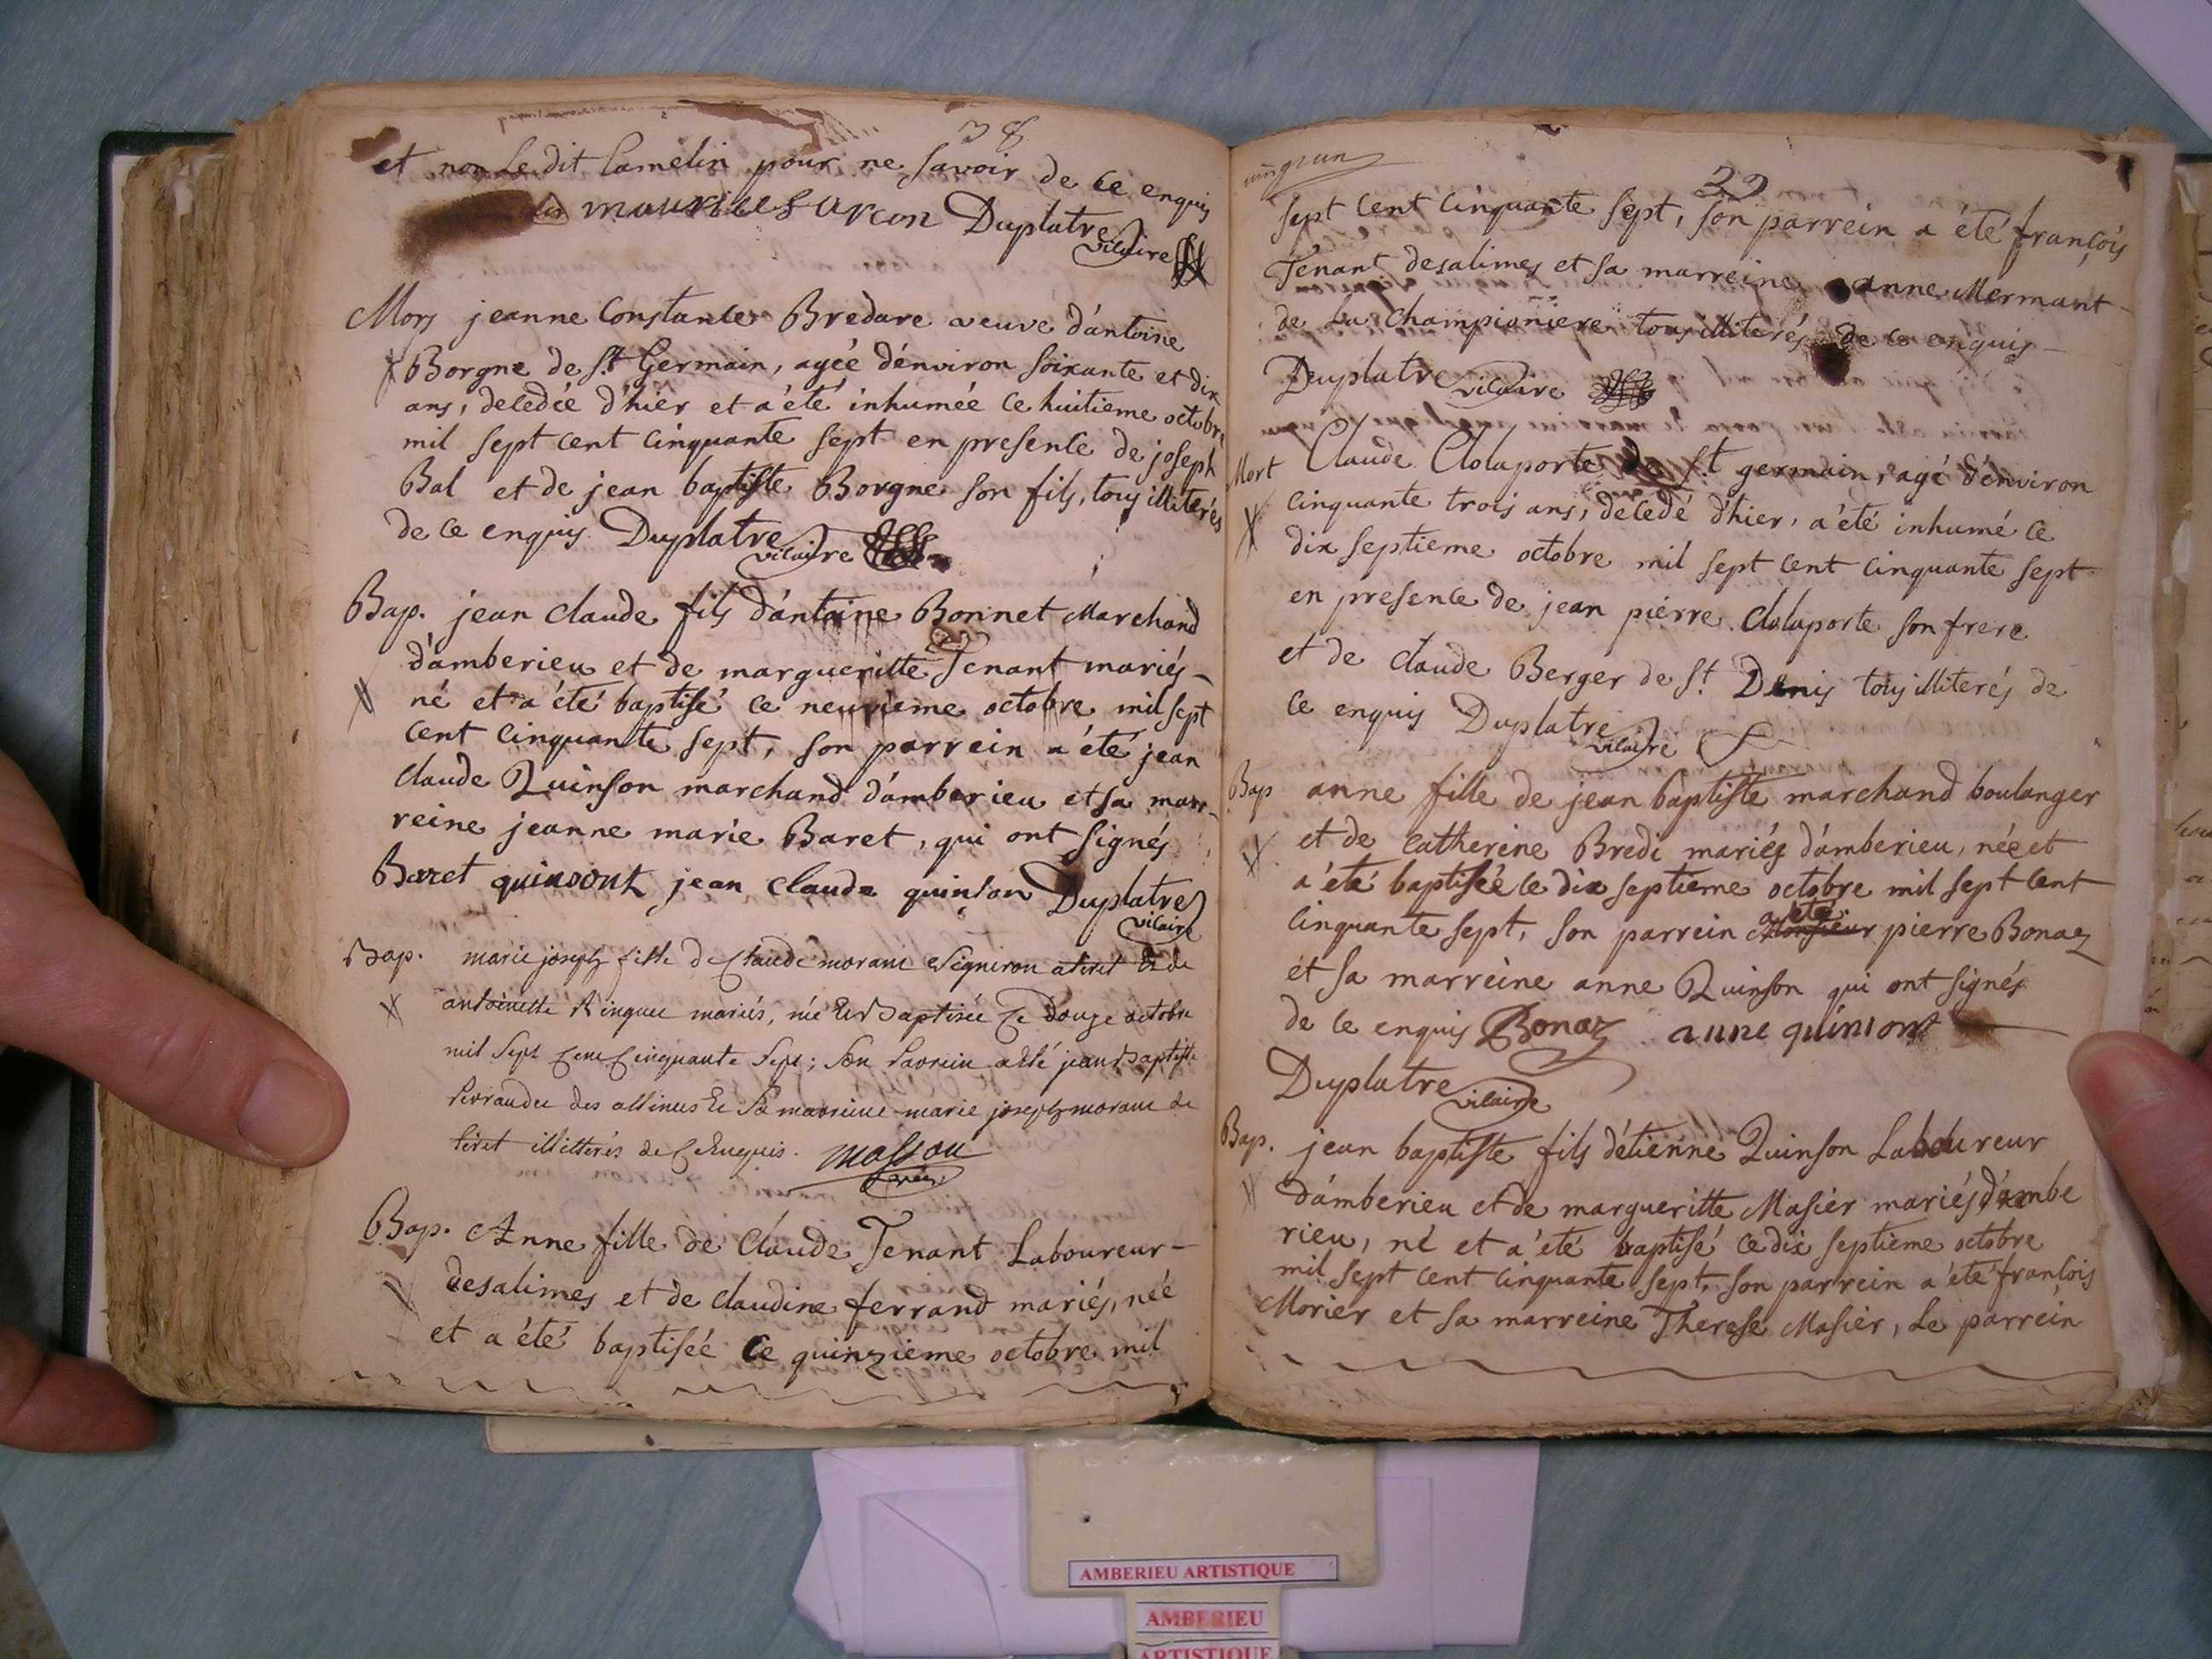 38
et non Ledit Camelin pour ne savoir de ce enquis
mauriCe SArcon Duplatre
vicaire
Mors jeanne Constance Bredare veuve d'antoine
Borgne de St Germain, agée d'environ soixante et dix
ans, decedée d'hier et a été inhumée ce huitieme octobre
mil sept cent cinquante sept en presence de joseph
Bal et de jean baptiste Borgne son fils, tous illiterés
de ce enquis Duplatre
vicaire
Bap. jean claude fils d'antoine Bonnet Marchand
d'amberieu et de margueritte Tenant mariés
né et a été baptisé ce neuvieme octobre mil sept
cent cinquante sept, son parrein a été jean
claude Quinson marchand d'amberieu et sa mar-
reine jeanne marie Baret, qui ont signés
Baret quinsont jean claude quinson Duplatre
vicaire
Bap. marie joseph fille de Claude morant vigneron atiret et de
antoinette mariés, née et Baptisée ce douze octobre
mil sept Cent Cinquante sept; son parrein a été jean Baptiste
des allimes et sa marreine marie joseph morant de
tiret illitterés de ce enquis. Masson
curé
Bap. Anne fille de Claude Tenant Laboureur
desalimes et de claudine ferrand mariés, née
et a été baptisée ce quinzieme octobre mil
39
sept cent cinquante sept, son parrein a été françois
Tenant desalimes et sa marreine anne Mermant
de La championiere tous illiterés de ce enquis
Duplatre vicaire
Mort Claude Claporte de St germain, agé d'environ
cinquante trois ans, decedé d'hier, a été inhumé ce
dix septieme octobre mil sept cent cinquante sept
en presence de jean pierre son frere
et de claude Berger de St Denis tous illiterés de
ce enquis Duplatre
vicaire
Bap anne fille de jean baptiste marchand boulanger
et de catherine Bredi mariés d'amberieu, née et
a été baptisée le dix septieme octobre mil sept cent
a été
cinquante sept, son parrein Monsieur pierre Bonaz
et sa marreine anne Quinson qui ont signés
de ce enquis Bonaz anne quinsont
Duplatre
vicaire
Bap. jean baptiste fils d'etienne Quinson Laboureur
d'amberieu et de margueritte Masier mariés d'ambe
rieu, né et a été baptisé ce dix septieme octobre
mil sept cent cinquante sept, son parrein a été françois
Morier et sa marreine Therese Masier, Le parrein
AMBERIEU ARTISTIQUE
AMBERIEU
ARTISTIQUE